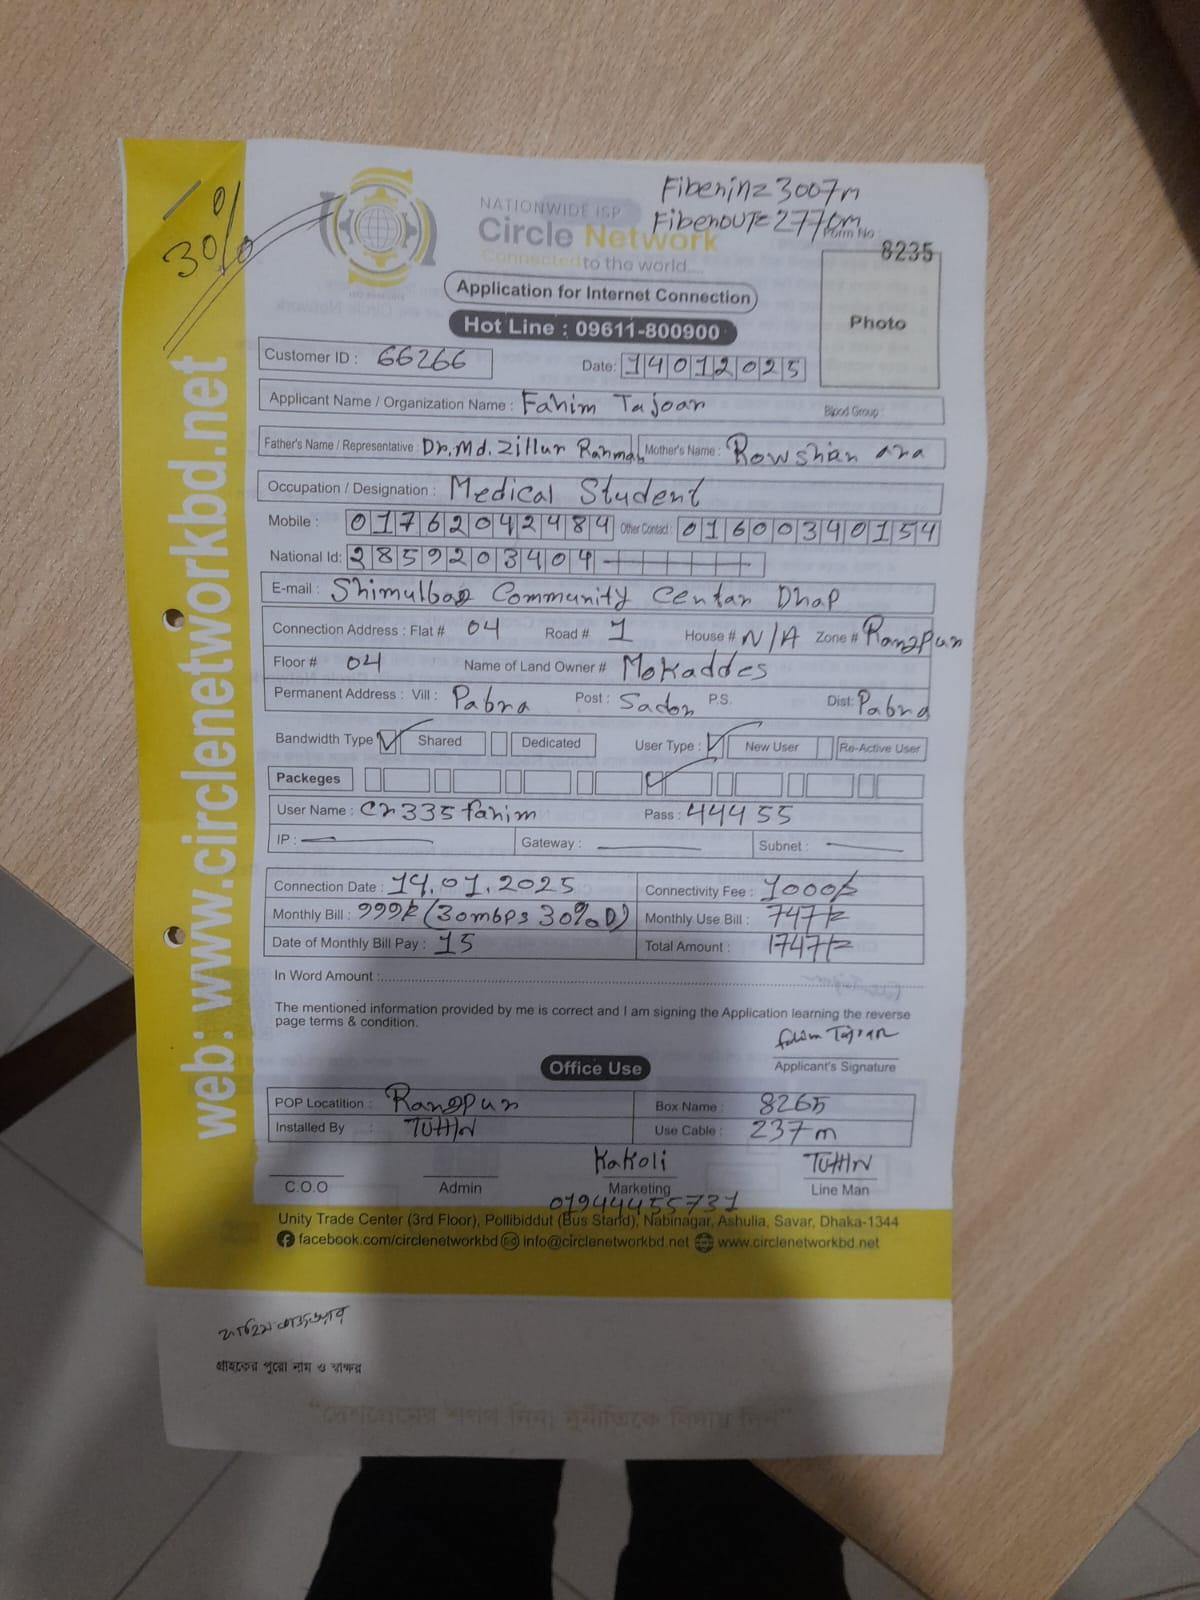 30%
Fiberin=3007m
Fiberout=2770m
NATIONWIDE ISP
Circle Network
Connected to the world....
Form No :
8235
Application for Internet Connection
Hot Line : 09611-800900
Photo
Customer ID : 66266
Date: 14012025
Applicant Name / Organization Name : Fahim Tajoar
Blood Group :
Father's Name / Representative : Dr. Md. Zillur Rahman Mother's Name : Rowshan ara
Occupation / Designation : Medical Student
Mobile : 01762042484 Other Contact : 01600340154
National Id: 2859203404
E-mail : Shimulbag Community Centar Dhap
Connection Address : Flat # 04 Road # 1 House # N/A Zone # Rangpur
Floor # 04 Name of Land Owner # Mokaddes
Permanent Address : Vill : Pabna Post : Sador P.S. Dist: Pabna
Bandwidth Type Shared Dedicated User Type : New User Re-Active User
Packeges
User Name : Cr335fahim Pass : 44455
IP : Gateway : Subnet :
Connection Date : 14.01.2025 Connectivity Fee : 1000/=
Monthly Bill : 999/= (30mbps 30% D) Monthly Use Bill : 747/=
Date of Monthly Bill Pay : 15 Total Amount : 1747/=
In Word Amount :
The mentioned information provided by me is correct and I am signing the Application learning the reverse
page terms & condition.
Fahim Tajoar
Applicant's Signature
Office Use
POP Locatition : Rangpur Box Name : 8265
Installed By : TUHIN Use Cable : 237m
Kakoli TUHIN
C.O.O Admin Marketing Line Man
01944455731
Unity Trade Center (3rd Floor), Pollibiddut (Bus Stand), Nabinagar, Ashulia, Savar, Dhaka-1344
facebook.com/circlenetworkbd info@circlenetworkbd.net www.circlenetworkbd.net
web: www.circlenetworkbd.net
গ্রাহকের পুরো নাম ও স্বাক্ষর
"দেশপ্রেমের শপথ নিন, দুর্নীতিকে বিদায় দিন"